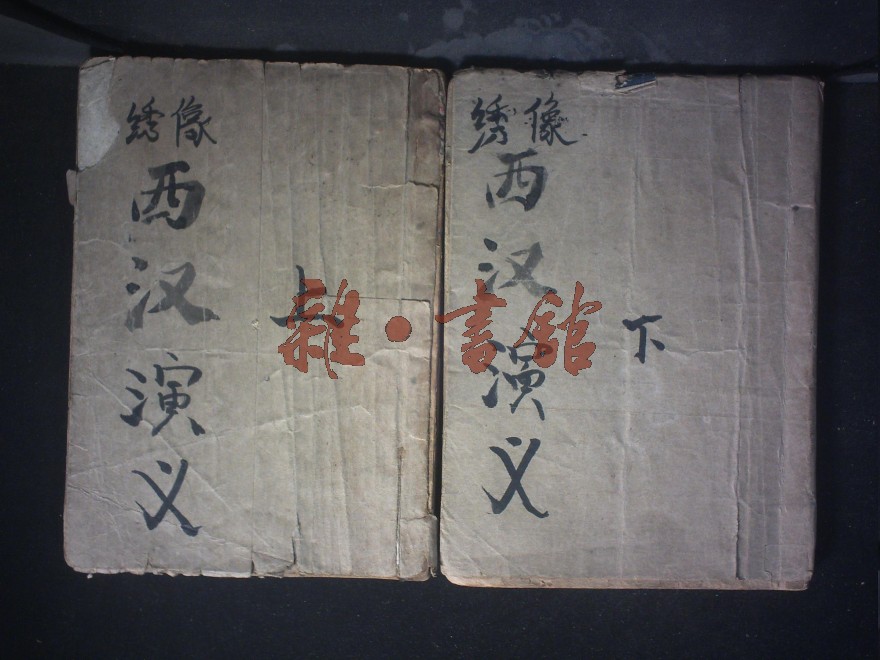 绣像
西汉演义
上
绣像
西汉演义
下
雜·書舘